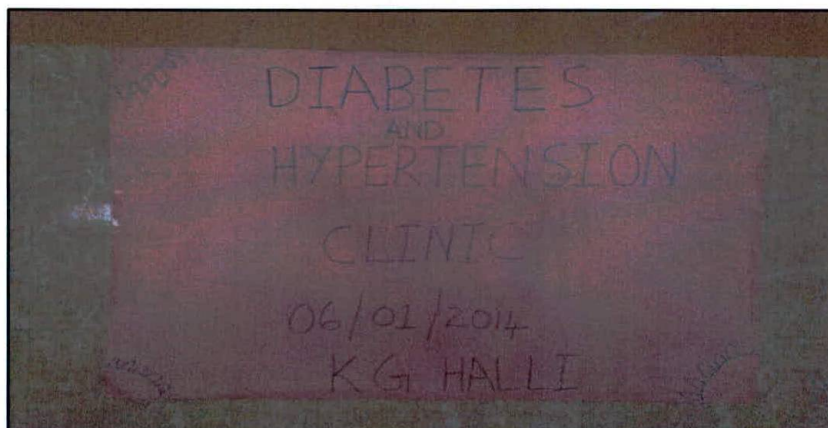 DIABETES
AND
HYPERTENSION
CLINIC
06/01/2014
KG HALLI